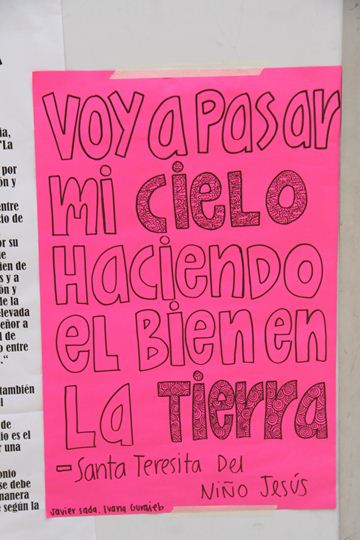 VOY A PASAR
mi CieLO
HACiENDO
eL Bien en
LA Tierra
- Santa Teresita Del
Niño Jesús
Javier Sada, Ivana
por
ón y
entre
cio de
por su
ien de
s y a
ón y
de la
levada
eñor a
l de
o entre
también
l
de
io es el
r una
onio
se debe
manera
e según la